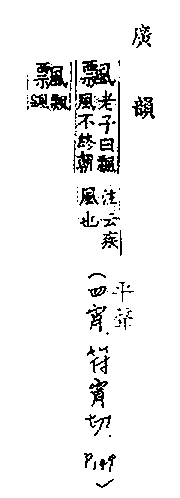 廣韻
飄 老子曰飄風不終朝 注云疾風也
(平聲 四宵, 符宵切. P.149)
飄